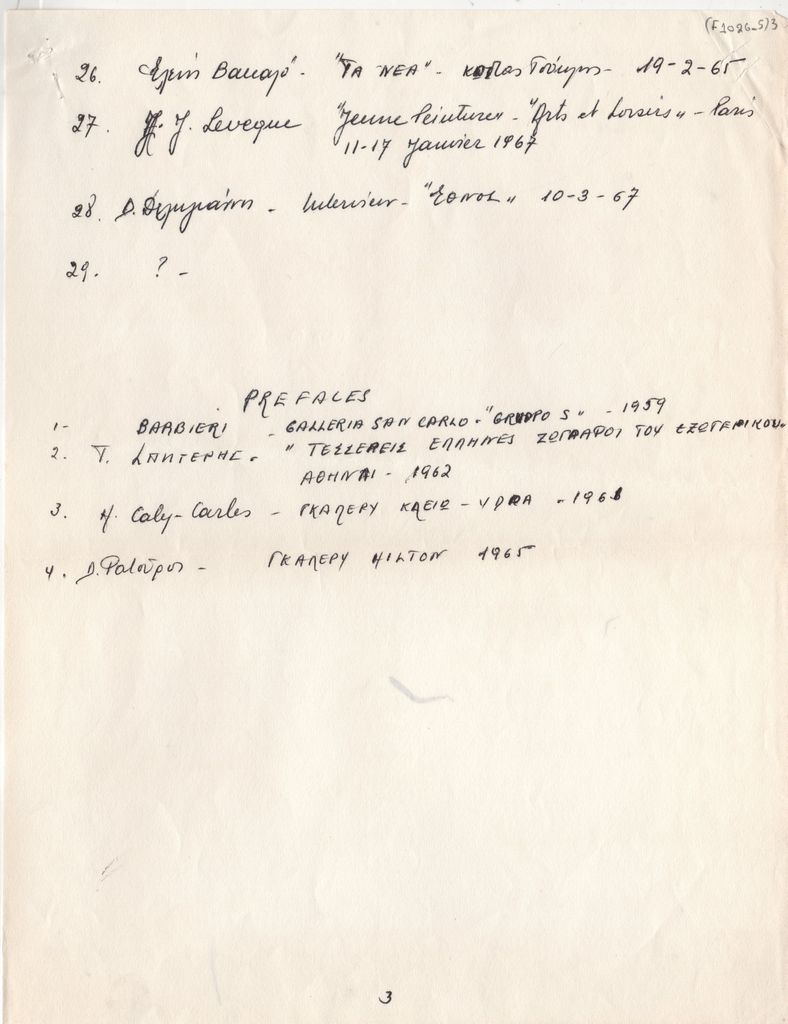 (F1026-S)3
26. Ελένη Βακαλό - "ΤΑ ΝΕΑ" - 19-2-65
27. J. J. Leveque "Jeune Peinture" - "Arts et Loisirs" - Paris
11-17 Janvier 1967
28. D. - Interview - "ΕΘΝΟΣ" 10-3-67
29. ? -
PREFACES
1- BARBIERI - GALLERIA SAN CARLO - "GRUPPO S" - 1959
2. Τ. ΣΠΗΤΕΡΗΣ - "ΤΕΣΣΕΡΕΙΣ ΕΛΛΗΝΕΣ ΖΩΓΡΑΦΟΙ ΤΟΥ ΕΞΩΤΕΡΙΚΟΥ"
ΑΘΗΝΑΙ - 1962
3. H. Caly-Carles - ΓΚΑΛΕΡΥ ΚΛΕΙΩ - ΥΔΡΑ - 1961
4. D. - ΓΚΑΛΕΡΥ HILTON 1965
3